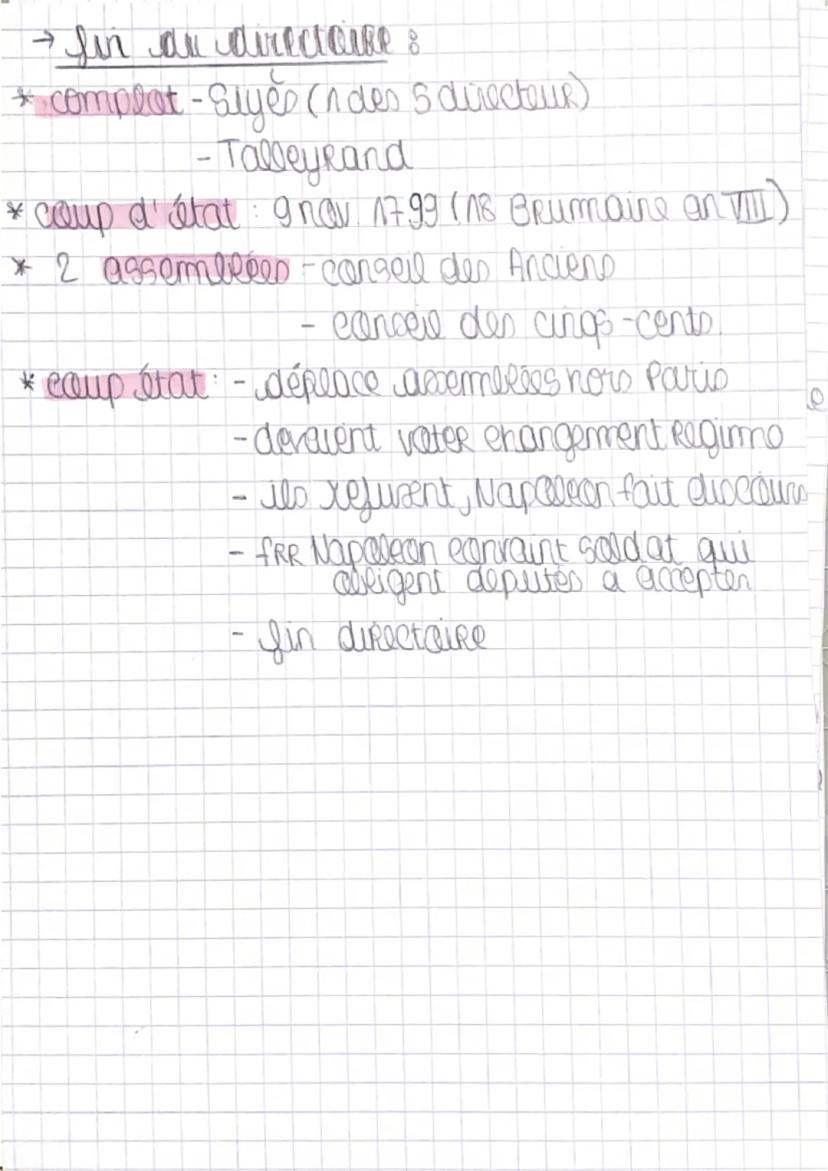 → fin du directoire :
* complot - Siyès (1 des 5 directeur)
- Talleyrand
* coup d'état : 9 nov 1799 (18 Brumaire an VIII)
* 2 assemblées - conseil des Anciens
- conseil des cinqs-cents
* coup état : - déplace assemblées hors Paris
- devaient voter changement Regime
- ils refusent, Napoléon fait discours
- fRR Napoleon convaint soldat qui
obligent députés a accepter
- fin directoire